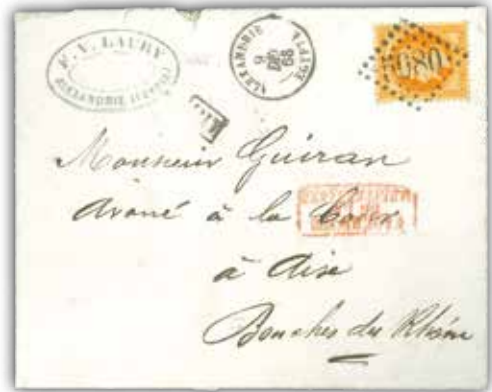 F. V. LAURY
ALEXANDRIE (EGYPTE)
ALEXANDRIE
9
DEC
68
EGYPTE
5080
Monsieur Guiran
Avoué à la Cour
à Aix
Bouches du Rhône